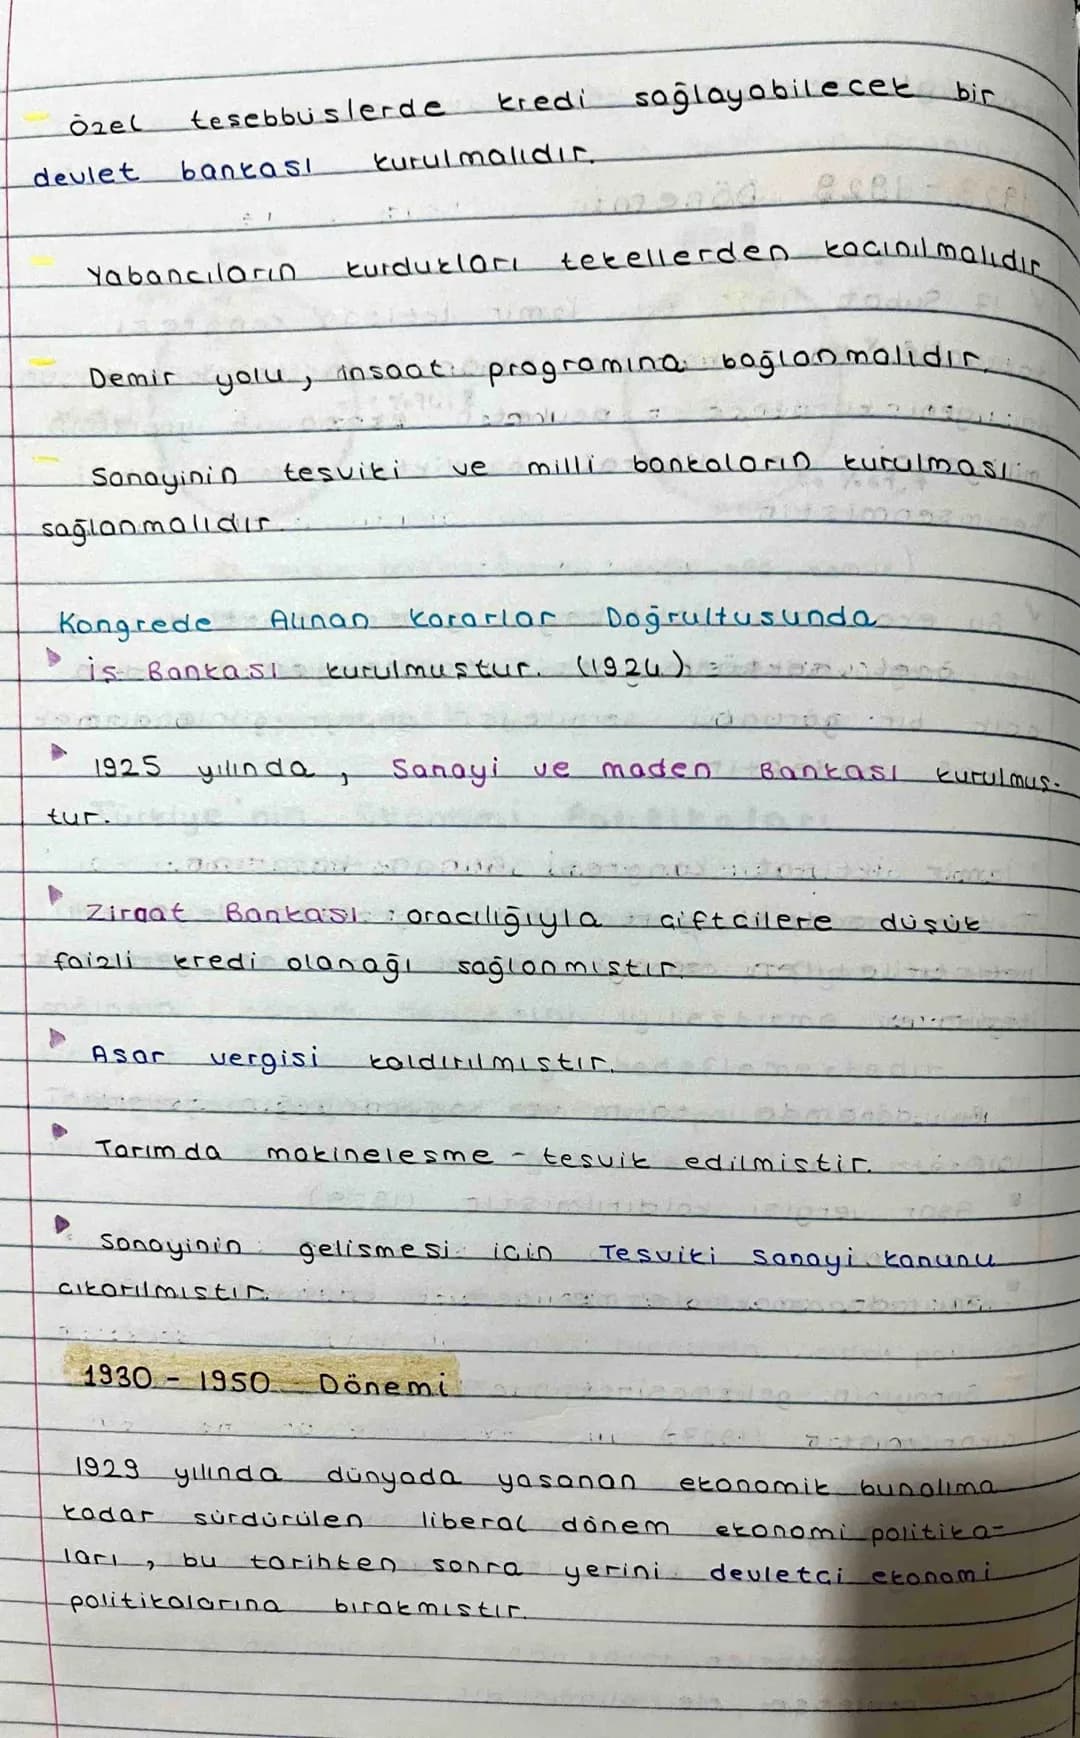 Özel tesebbüslerde kredi sağlayabilecek bir
devlet bankası kurulmalıdır.
Yabancıların kurdukları tekellerden kacınılmalıdır
Demir yolu, insaat programına bağlanmalıdır.
Sanayinin tesviki ve milli bankaların kurulması
sağlanmalıdır.
Kongrede Alınan Kararlar Doğrultusunda
İş Bankası kurulmustur. (1924)
1925 yılında, Sanayi ve maden Bankası kurulmuş-
tur.
Ziraat Bankası aracılığıyla ciftcilere düşük
faizli kredi olanağı sağlanmıstır.
Asar vergisi kaldırılmıstır.
Tarımda makinelesme - tesvik edilmistir.
Sanayinin gelismesi icin Tesviki Sanayi kanunu
cıkarılmıstır.
1930 - 1950 Dönemi
1929 yılında dünyada yasanan ekonomik bunalıma
kadar sürdürülen liberal dönem ekonomi politika-
ları, bu tarihten sonra yerini devletci ekonomi
politikalarına bırakmıstır.